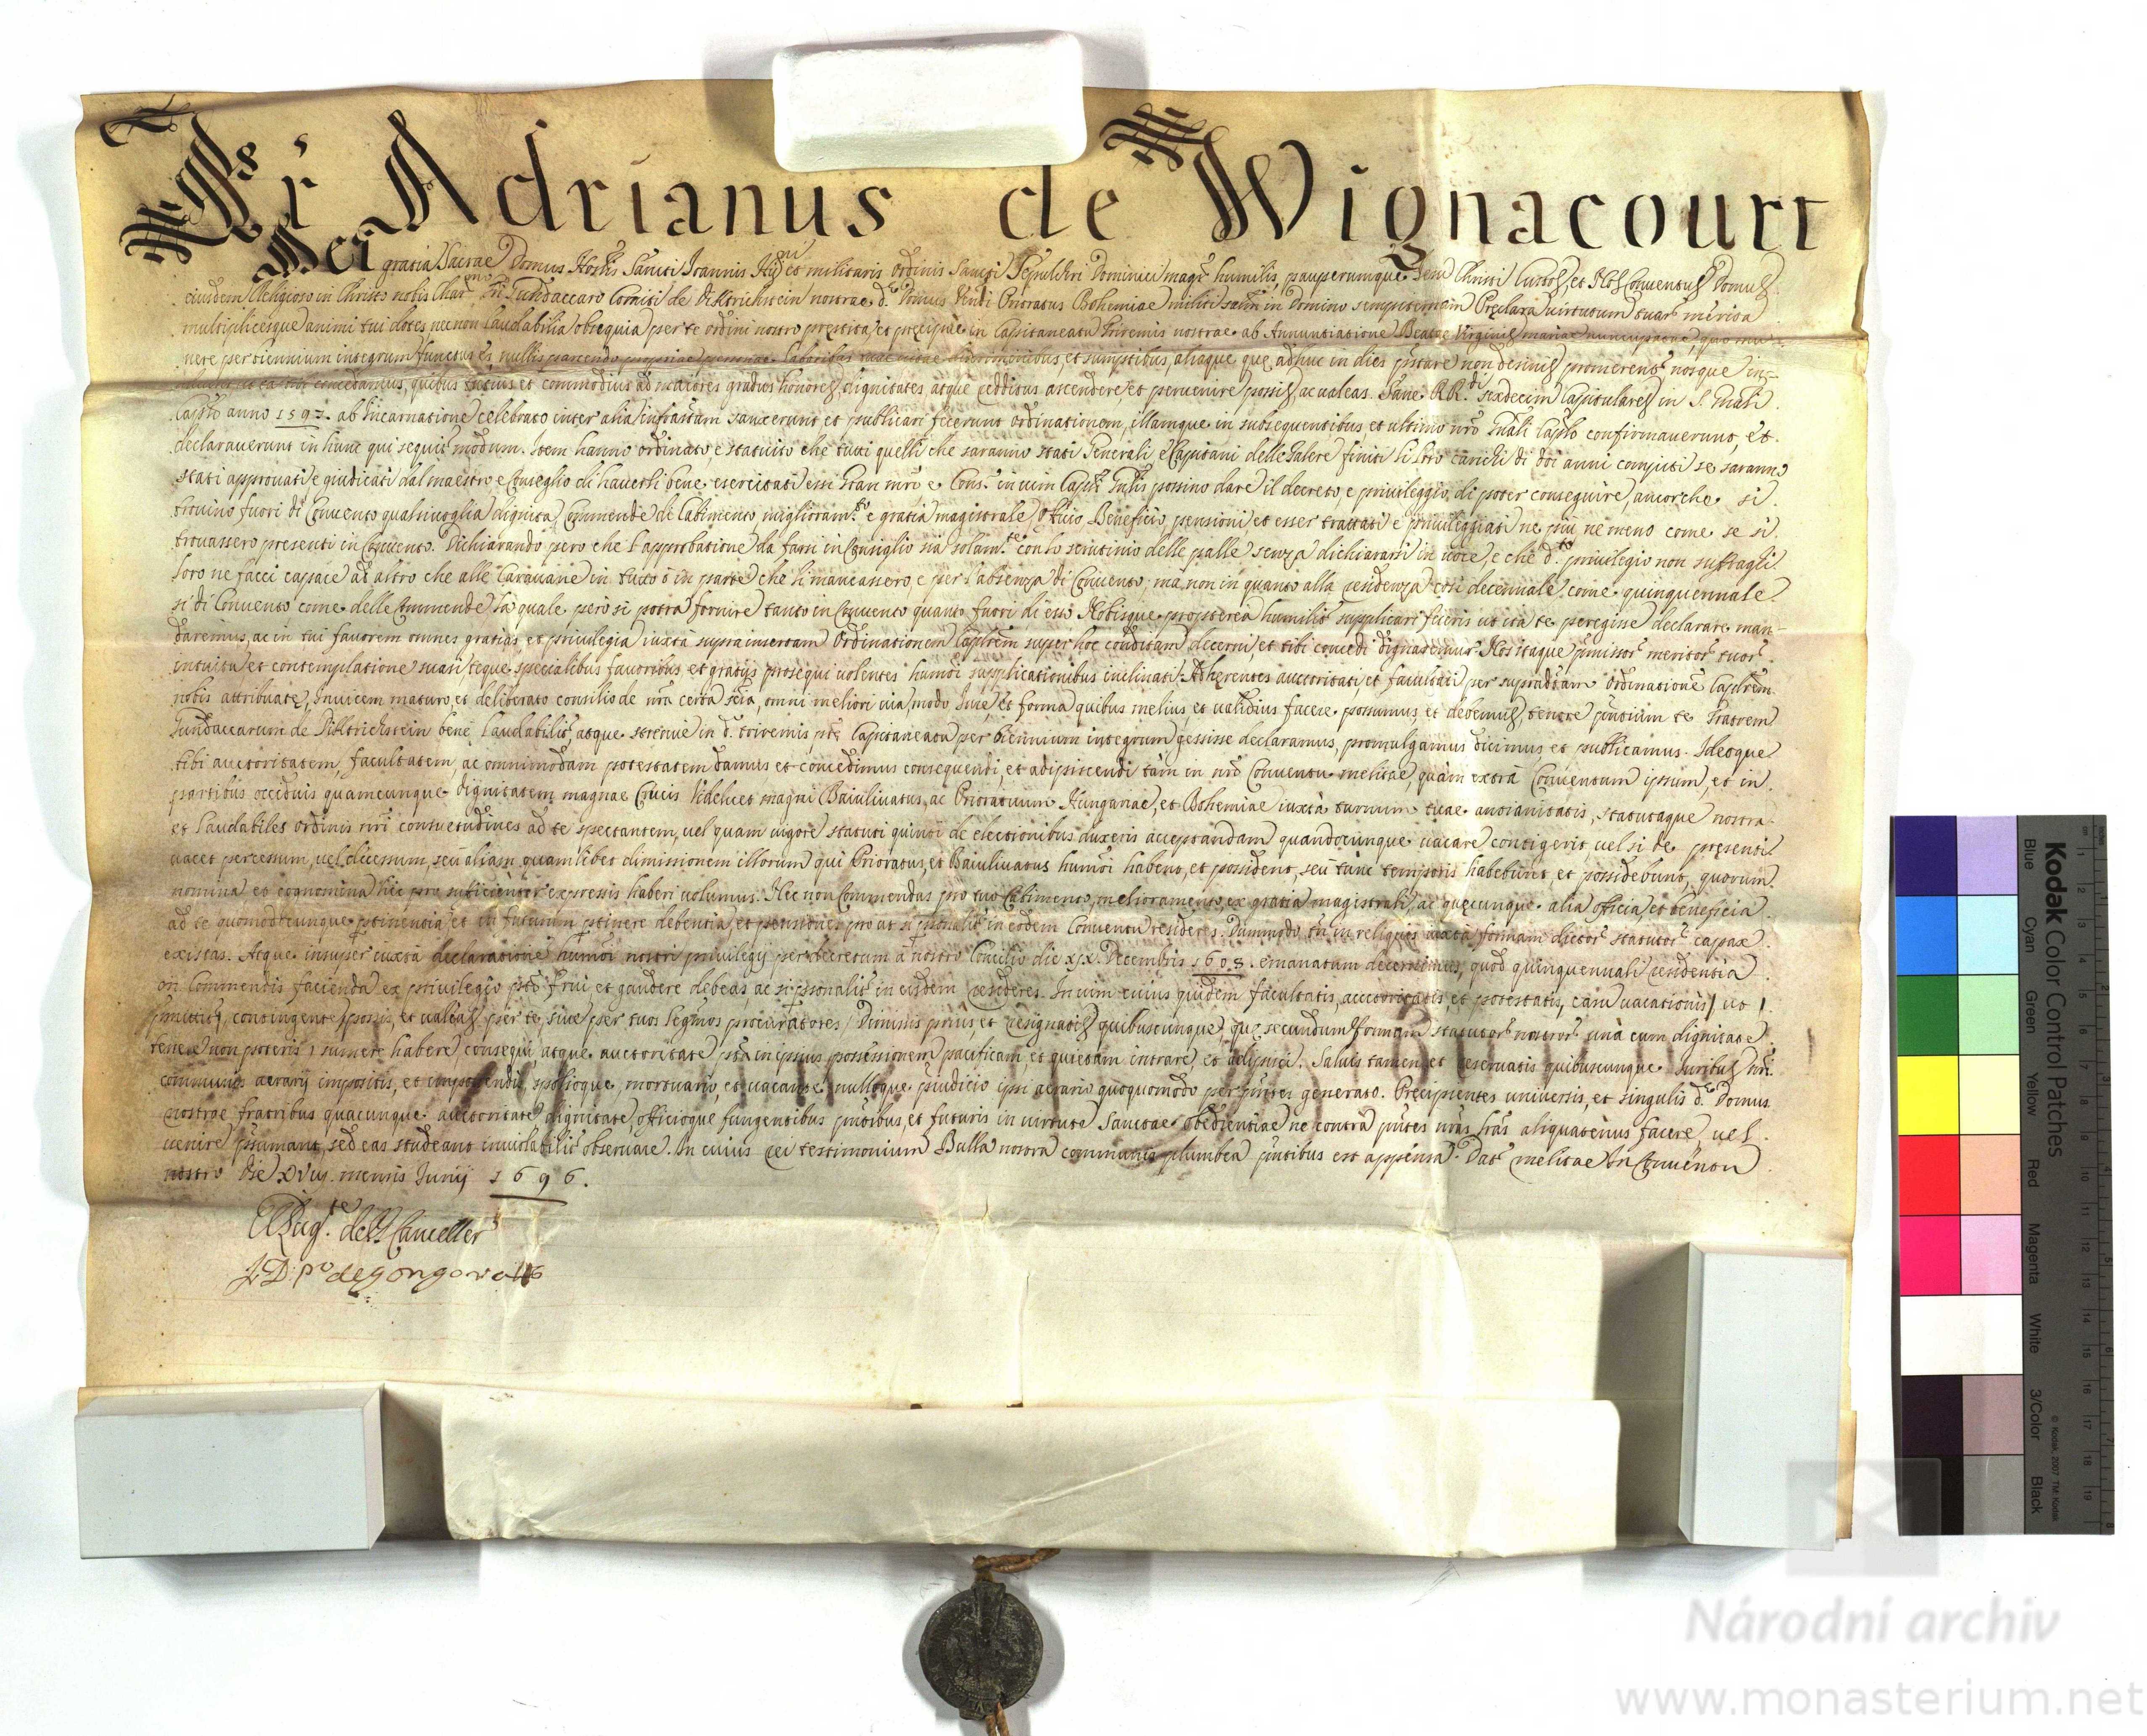 Fr Adrianus de Wignacourt
Dei gratia Sacrae Domus Hosplis Sancti Joannis Hierni et militaris Ordinis Sancti Sepulchri Dominici magr humilis, pauperumque Jesu Christi Custos, et Nos Conventus Domus
eiusdem Religioso in Christo nobis Charmo fri Gundaccaro Comiti de Dittrichstein nostrae de Domus Prioratus Bohemiae militi salm in Domino sempiternam Pręclara virtutum tuar merita
multiplicesque animi tui dotes nec non laudabilia obsequia per te ordini nostro pręstita, et pręcipuè in Capitaneatu triremis nostrae ab Annuntiatione Beatae Virginis mariae nuncupatae, quo mu-
nere per biennium integrum functus es, nullis parcendo propriae personae laboribus, et sumptibus, aliaque, quę adhuc in dies pstare non desinis promerent nosque in-
concedamus, quibus tutius et commodius ad maiores gradus honores, dignitates, atque redditus ascendere et pervenire possis, ac valeas. Sane RR.di sexdecim Capitulares in S. Gnali
Caplo anno 1597. ab Incarnatione celebrato inter alia infrascriptam sanxerunt et publicari fecerunt ordinationem, illamque in subsequentibus, et ultimo nro Gnali Caplo confirmaverunt, et
declaraverunt in hunc qui sequir modum. Item hanno ordinato, e statuito che tutti quelli che saranno stati Generali e Capitani delle Galere finiti li loro carichi di doi anni compiti se saranno
stati approvati e giudicati dal maestro e Conseglio di haverli bene esercitati essi Gran mro e Cons. in vim Caplis Gnlis possino dare il decreto, e privileggio di poter conseguire, ancorche si
trovino fuori di Convento qualsivoglia dignità, Commende di Cabimento, miglioram.to e gratia magistrale, Offitio Beneficio, pensioni et esser trattati e privileggiati ne più ne meno come se si
trovassero presenti in Convento. Dichiarando però che l'approbatione da farsi in Consiglio sia solam.te con lo scrutinio delle palle senza dichiararsi in voce, e che d.to privilegio non suffraghi
loro ne facci capace ad altro che alle Caravane in tutto ò in parte che li mancassero, e per l'absenza di Convento, ma non in quanto alla residenza così decennale come quinquennale
si di Convento come delle Commende la quale però si potrà fornire tanto in Convento quanto fuori di esso Nobisque propterea humilit supplicari feceris ut ita te peregisse declarare man-
daremus, ac in tui favorem omnes gratias et privilegia iuxta suprainsertam Ordinationem Caplrem super hoc conditam decerni, et tibi concedi dignaremur. Nos itaque pmissor meritor tuor
intuitu et contemplatione suasi, teque specialibus favoribus, et gratijs prosequi volentes humoi supplicationibus inclinati. Adherentes auctoritati, et facultati per supradtam Ordinatione Caplrem
nobis attributę, Invicem maturo, et deliberato consilio de nra certa scia, omni meliori via, modo Jure, et forma quibus melius, et validius facere possumus, et debemus, tenore pntium te Fratrem
Gundaccarum de Dittrichstein bene, laudabilit, atque strenuè in d. triremis pte Capitaneatu per biennium integrum gessisse declaramus, promulgamus dicimus, et publicamus. Ideoque
tibi auctoritatem, facultatem, ac omnimodam potestatem damus et concedimus consequendi, et adipiscendi tàm in nro Conventu melitae, quàm extrà Conventum ipsum, et in
partibus occiduis quamcunque dignitatem magnae Crucis videlicet magni Baiulivatus, ac Prioratuum Hungariae, et Bohemiae iuxtà turnum tuae antianitatis, statutaque nostra
et laudabiles ordinis nri consuetudines ad te spectantem, vel quam vigore statuti quinti de electionibus duxeris acceptandam quandocunque vacare contigerit, vel si de presenti
vacet per cessum, vel dicessum, seu aliam quamlibet dimissionem illorum qui Prioratus, et Baiulivatus humoi habent, et possident, seu tunc temporis habebunt, et possidebunt, quorum
nomina et cognomina hic pro suficienter expressis haberi volumus. Nec non Commendas pro tuo Cabimento, melioramento, ex gratia magistrali, ac quęcunque alia officia, et beneficia
ad te quomodocunque ptinentia, et in futurum ptinere debentia, et pensiones pro ut si psonalit in eodem Conventu resideres. Dummodo tn in reliquis iuxtà formam dictor statutor capax
existas. Atque insuper iuxtà declaratione humoi nostri privilegij per decretum à nostro Concilio die xjx. Decembris 1608. emanatam decernimus, quod quinquennali residentia
in Commendis facienda ex privilegio pto frui et gaudere debeas, ac si psonalit in eisdem resideres. In vim cuius quidem facultatis, auctoritatis, et potestatis, casu vacationis, ut
pmittit, contingente possis, et valeas per te, sive per tuos legmos procuratores, Dimissis prius, et resignatis quibuscunque, quę secundum formam statutor nostror unà cum dignitate
tenere non poteris, sumere habere, consequi, atque auctoritate pta in ipsius possessionem pacificam, et quietam intrare, et adipisci. Salvis tamen, et reservatis quibuscunque Juribus nri
communis aerarij impositis, et imponendis, spolioque, mortuario, et vacante nulloque pjudicio ipsi aerario quoquomodo per pntes generato. Pręcipientes universis, et singulis d.ę Domus
nostrae fratribus quacunque auctoritate, dignitate, officioque fungentibus pntibus, et futuris in virtute Sanctae obedientiae ne contrà pntes nras lras aliquatenus facere, vel
venire psumant, sed eas studeant inviolabilit observare. In cuius rei testimonium Bulla nostra communis plumbea pntibus est appensa. Dat melitae In Conventu
nostro die xvij. mensis Junij 1696.
Cancellers
de gongora
Kodak Color Control Patches
Blue Cyan Green Yellow Red Magenta White 3/Color Black
© Kodak, 2007 TM: Kodak
Národní archiv
www.monasterium.net